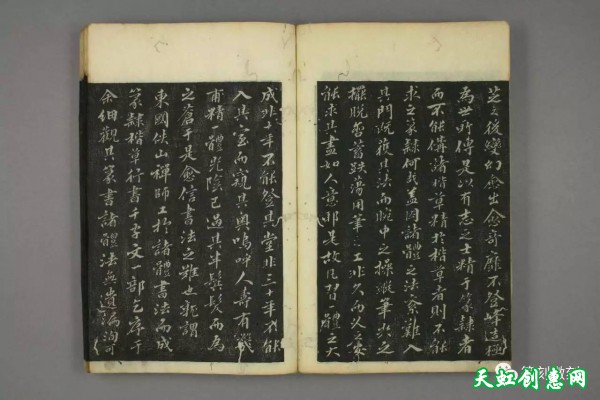 芝之後變幻愈出愈奇靡不登峰造極
為世所傳是以有志之士精于篆隸者
而不能備諸楷草精於楷草者則不能
求之篆隸何哉蓋因諸體之法奈難入
其門既獲其法而腕中之操縱筆尖之
擺脫頓跌蕩用筆之工非久而又久莫
能求其盡如人意非是故凡習一體之大
成非十年不能登其堂非三十年不能
入其室而窺其奧嗚呼人壽有幾
甫精一體光陰已過其半鬢髮而為
之蒼于是愈信書法之難也
東國俠山禪師工於諸體書法而成
篆隸楷草行書千字文一部乞序于
余細觀其篆書諸體法無遺漏洵可
篆刻教室
天虹创意网